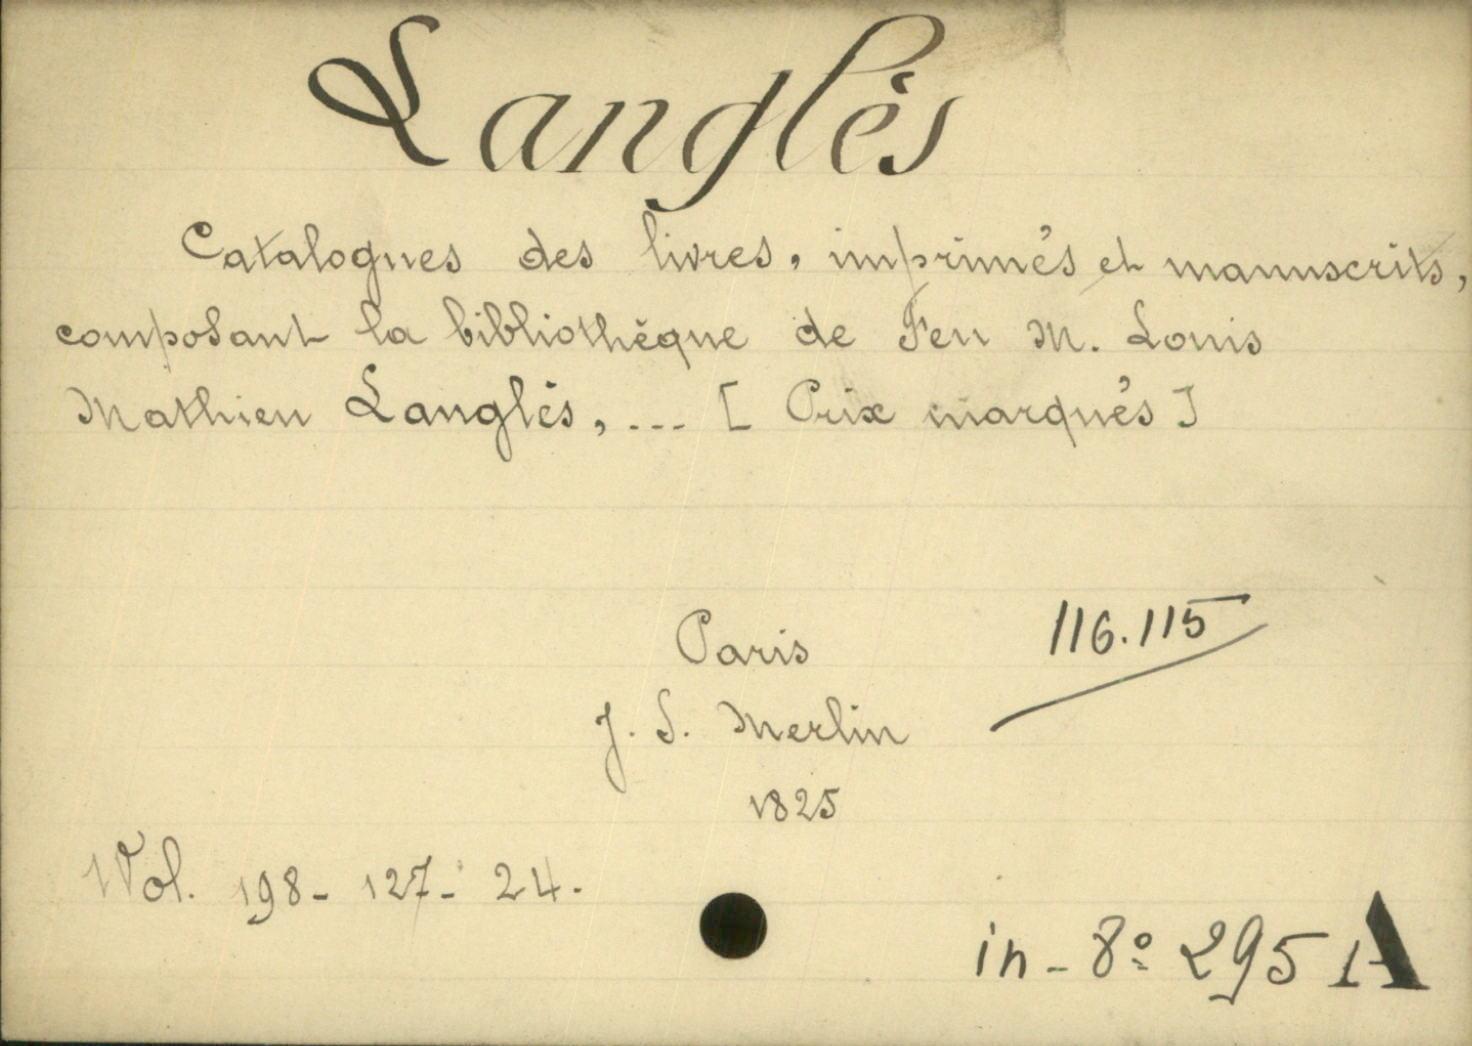 Langlès
Catalogues des livres, imprimés et manuscrits,
composant la bibliothèque de Feu M. Louis
Mathieu Langlès, ... [ Prix marqués ]
Paris
116.115
J. S. Merlin
1825
1 Vol. 198 - 127 - 24.
in-8º 295 A